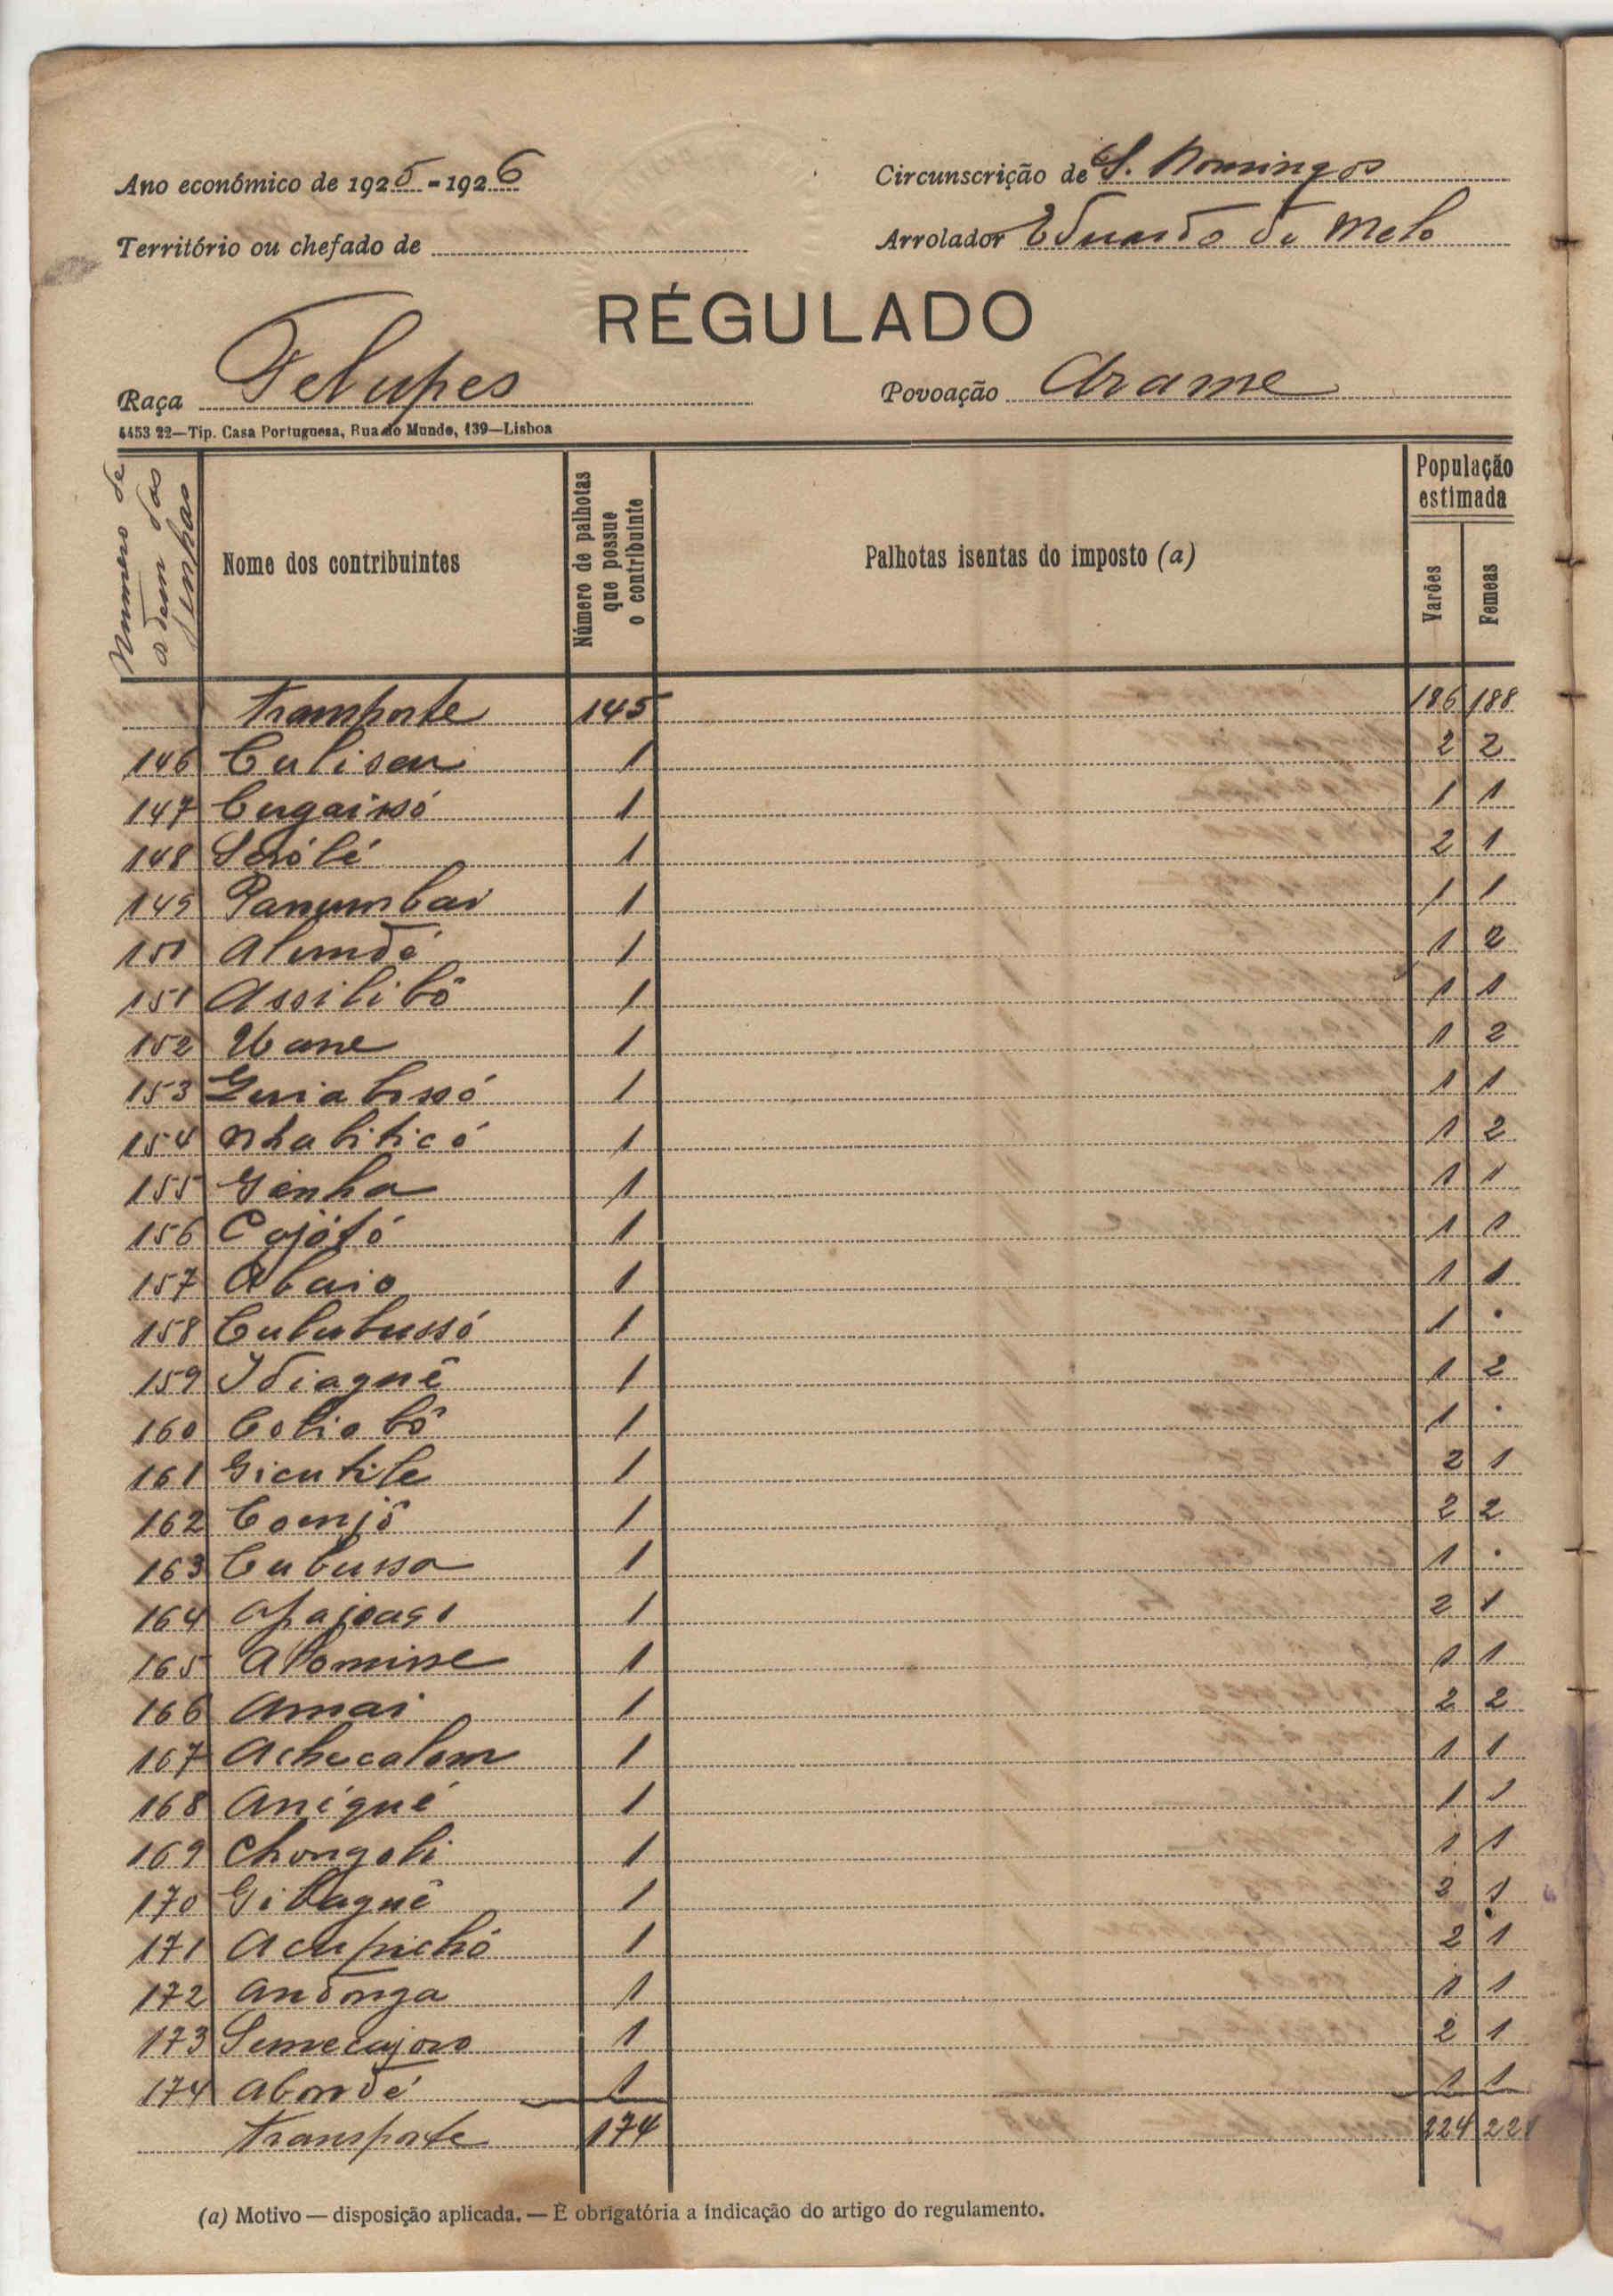 Ano económico de 1925-1926
Circunscrição de S. Domingos
Território ou chefado de
Arrolador Eduardo de Melo
RÉGULADO
Raça Felupes
Povoação Arame
4453 22—Tip. Casa Portuguesa, Rua do Mundo, 139—Lisboa
Numero de ordem das senhas
Nome dos contribuintes
Número de palhotas que possue o contribuinte
Palhotas isentas do imposto (a)
População estimada
Varões
Femeas
Transporte 145 186 188
146 Culiseu 1 2 2
147 Cugaissó 1 1 1
148 1 2 1
149 Panumbai 1 1 1
151 Alundé 1 1 2
151 Assilibô 1 1 1
152 Uane 1 1 2
153 1 1 1
154 Nhabiticó 1 1 2
155 Genha 1 1 1
156 Cajótó 1 1 1
157 Abaio 1 1 1
158 Culubussó 1 1 .
159 Idiaguê 1 1 2
160 Coliobô 1 1 .
161 Gicutile 1 2 1
162 Comjô 1 2 2
163 Cubussa 1 1 .
164 1 2 1
165 1 1 1
166 Amai 1 2 2
167 Achecalom 1 1 1
168 Aniqué 1 1 1
169 Chongoli 1 1 1
170 Gibaguê 1 2 1
171 Acupichó 1 2 1
172 Andonga 1 1 1
173 Semecajoro 1 2 1
174 Abondé 1 1 1
Transporte 174 224 221
(a) Motivo — disposição aplicada. — É obrigatória a indicação do artigo do regulamento.